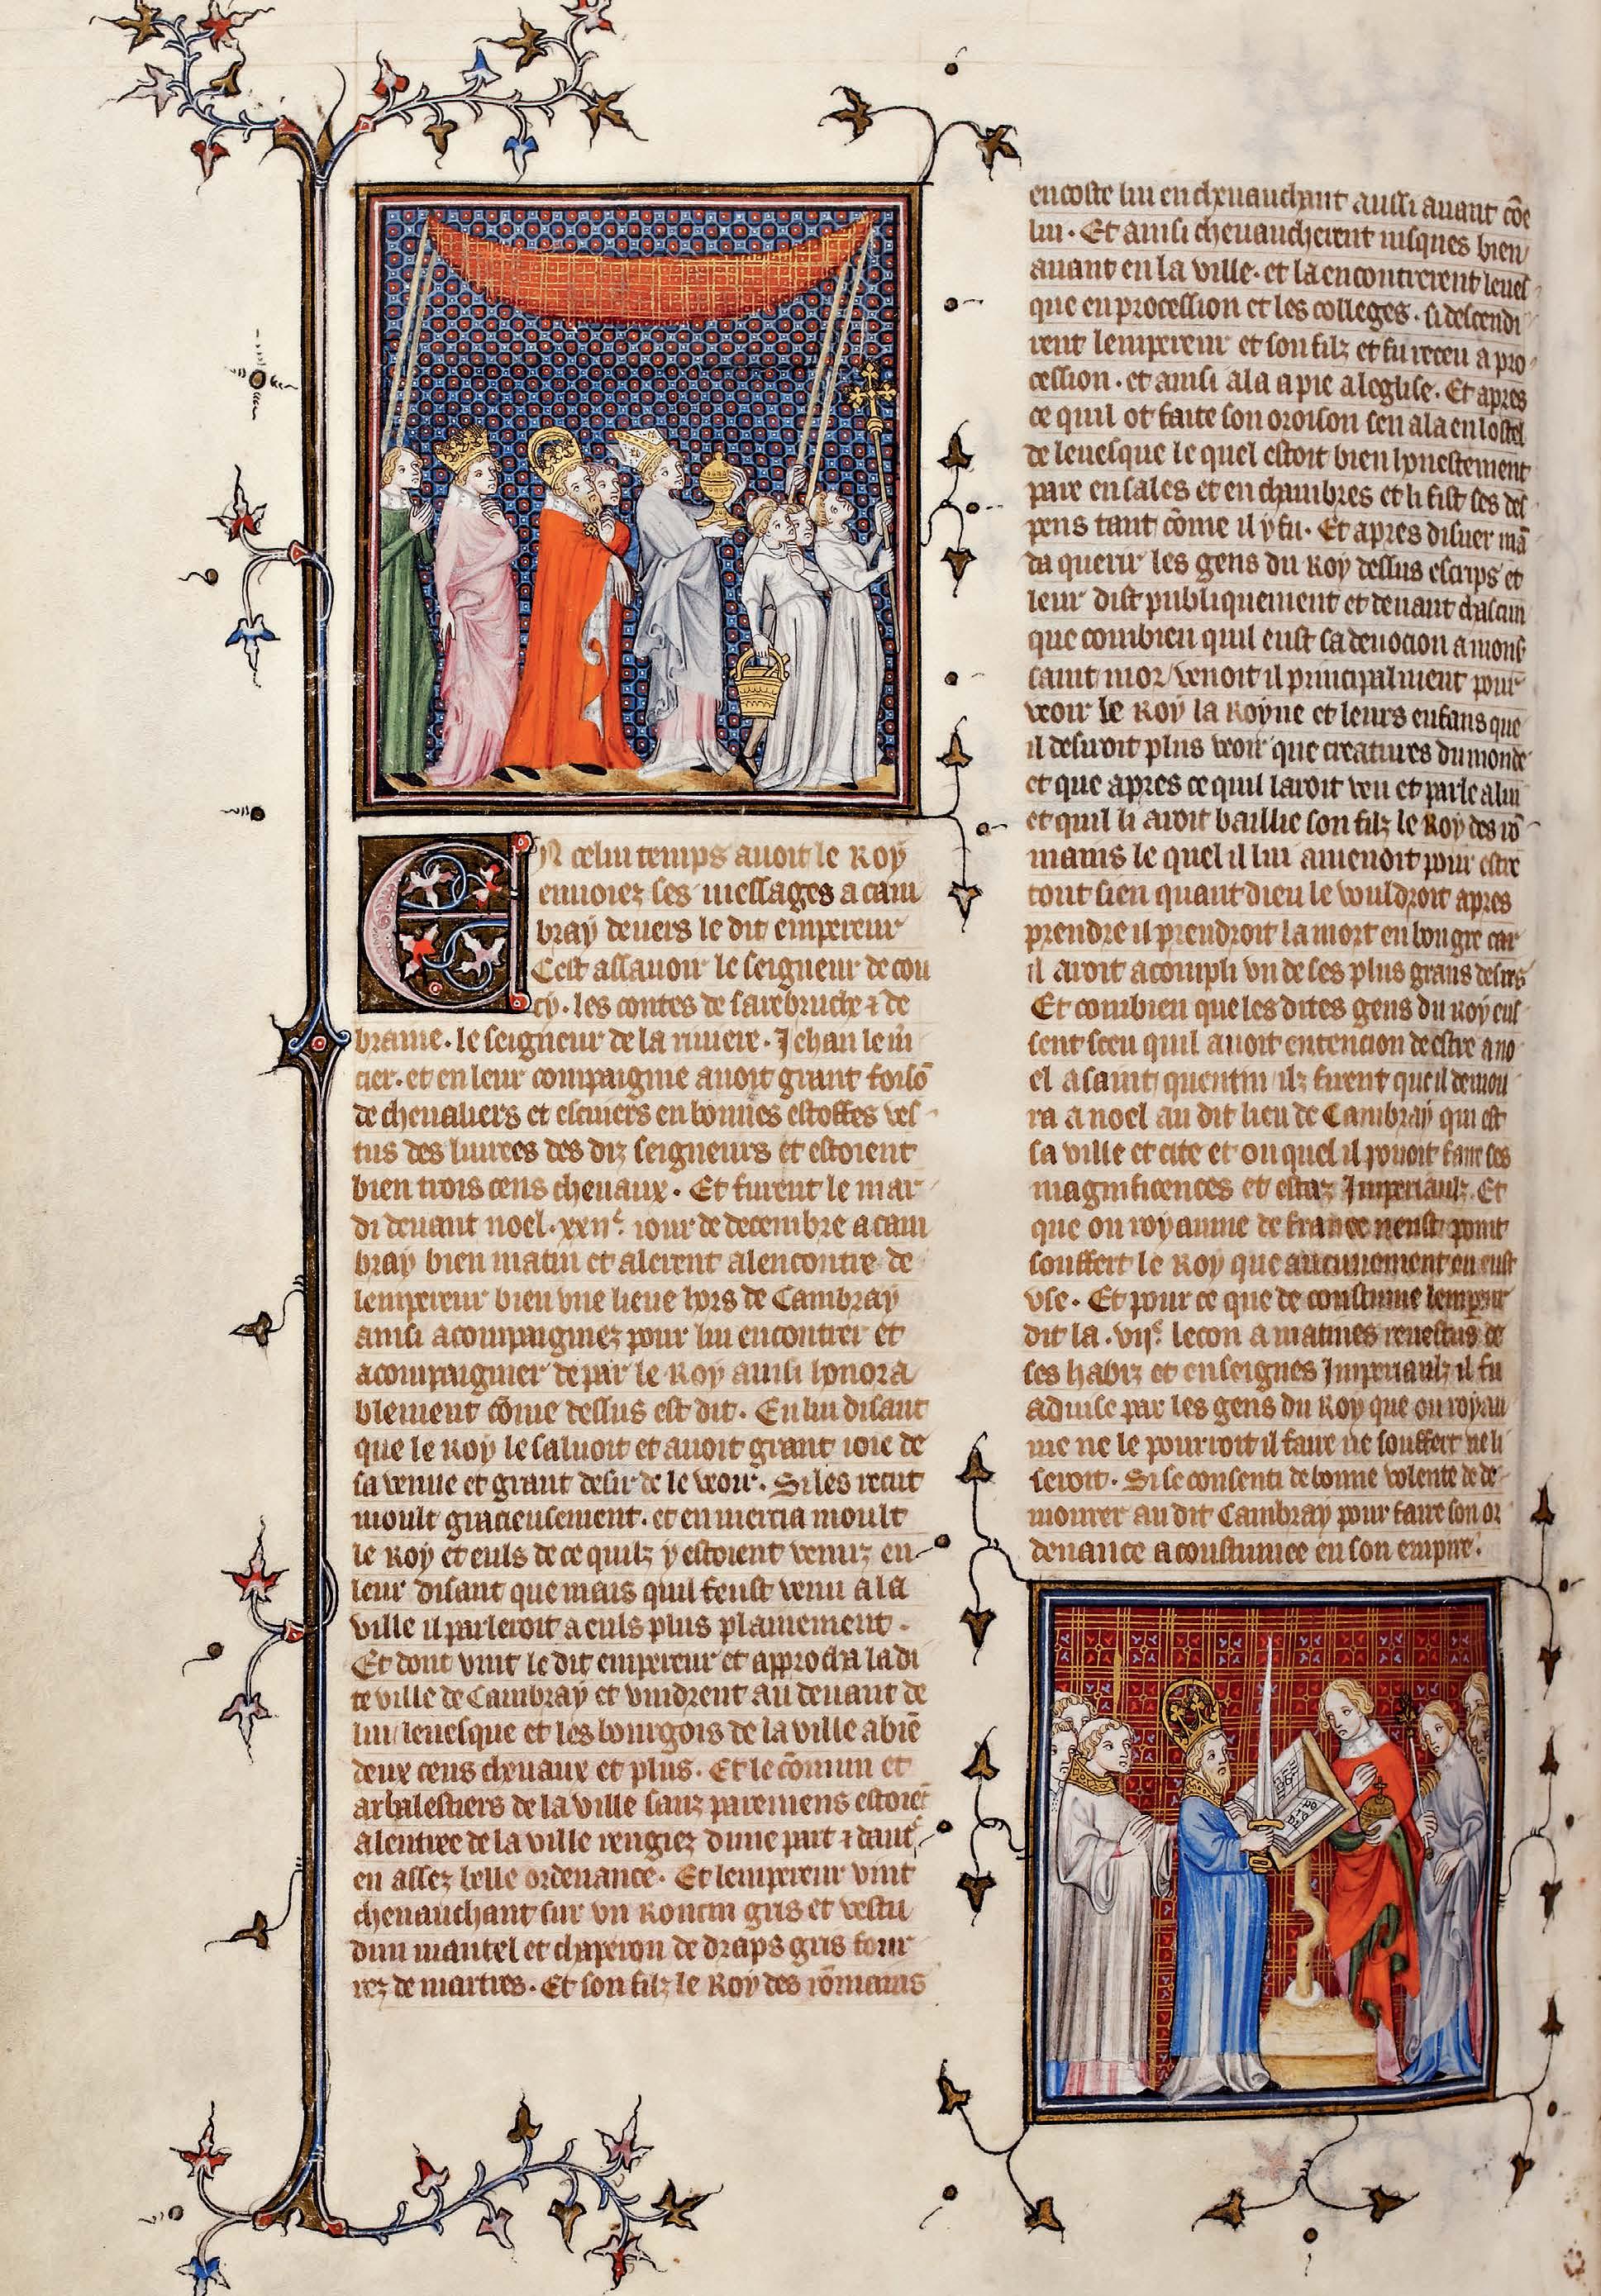 En celui temps avoit le Roy
envoiez ses messages a cam
bray devers le dit empereur
Cest assavoir le seigneur de cou
cy. les contes de sarebruche ⁊ de
braine. le seigneur de la riviere. Jehan le m̄
cier. et en leur compaignie avoit grant foisō
de chevaliers et escuiers en bonnes estoffes ves-
tus des livrees des diz seigneurs et estoient
bien trois cens chevaux. Et furent le mar-
di devant noel. xxiiᵉ. iour de decembre a cam
bray bien matin et alerent alencontre de
lempereur bien une lieue hors de Cambray
ainsi acompaigniez pour lui encontrer et
acompaignier de par le Roy ainsi honora
blement cōme dessus est dit. En lui disant
que le Roy le saluoit et avoit grant ioie de
sa venue et grant desir de le veoir. Si les recut
moult gracieusement. et en mercia moult
le Roy et euls de ce quilz y estoient venuz en-
leur disant que mais quil feust venu a la
ville il parleroit a euls plus plainement.
Et dont vint le dit empereur et approcha la di
te ville de Cambray et vindrent au devant de
lui levesque et les bourgois de la ville a biē
deux cens chevaux et plus. Et le cōmun et
arbalestiers de la ville sanz paremens estoiēt
alentree de la ville rengiez dune part ⁊ daut͛
en assez belle ordenance. Et lempereur vint
chevauchant sur un Roncin gris et vestu
dun mantel et chaperon de draps gris four-
rez de martres. Et son filz le Roy des rōmains
encoste lui en chevauchant aussi avant cōe
lui. Et ainsi chevaucherent iusques bien
avant en la ville. et la encontrerent leves-
que en procession et les colleges. si descendi
rent lempereur et son filz et fu receu a pro-
cession. et ainsi ala a pie a leglise. Et apres
ce quil ot faite son oroison sen ala en lostel
de levesque le quel estoit bien honnestement
pare en sales et en chambres et li fist ses des-
pens tant cōme il y fu. Et apres disner mā
da querir les gens du Roy dessus escrips et
leur dist publiquement et devant chascun
que combien quil eust sa devocion a mons͛
saint mor venoit il principalment pour
veoir le Roy la Royne et leurs enfans que
il desiroit plus veoir que creatures du monde
et que apres ce quil lavoit veu et parle a lui
et quil li avoit baillie son filz le Roy des rō-
mains le quel il lui amenoit pour estre
tout sien quant dieu le vouldroit apres
prendre il prendroit la mort en bon gre car
il avoit acompli un de ses plus grans desirs
Et combien que les dites gens du Roy eus-
sent sceu quil avoit entencion de estre a no-
el a saint quentin ilz firent que il demou-
ra a noel au dit lieu de Cambray qui est
sa ville et cite et ou quel il povoit faire ses
magnificences et estaz Imperiaulz. Et
que ou royaume de france neust point
souffert le Roy que aucunement en eust
use. Et pour ce que de coustume lempereur
dit la. viiᵉ. lecon a matines revestus de
ses habiz et enseignes Imperiaulz il fu
advise par les gens du Roy que ou royau
me ne le pourroit il faire ne souffert ne li
seroit. Si se consenti de bonne volente de de-
mourer au dit Cambray pour faire son or
denance acoustumee en son empire.